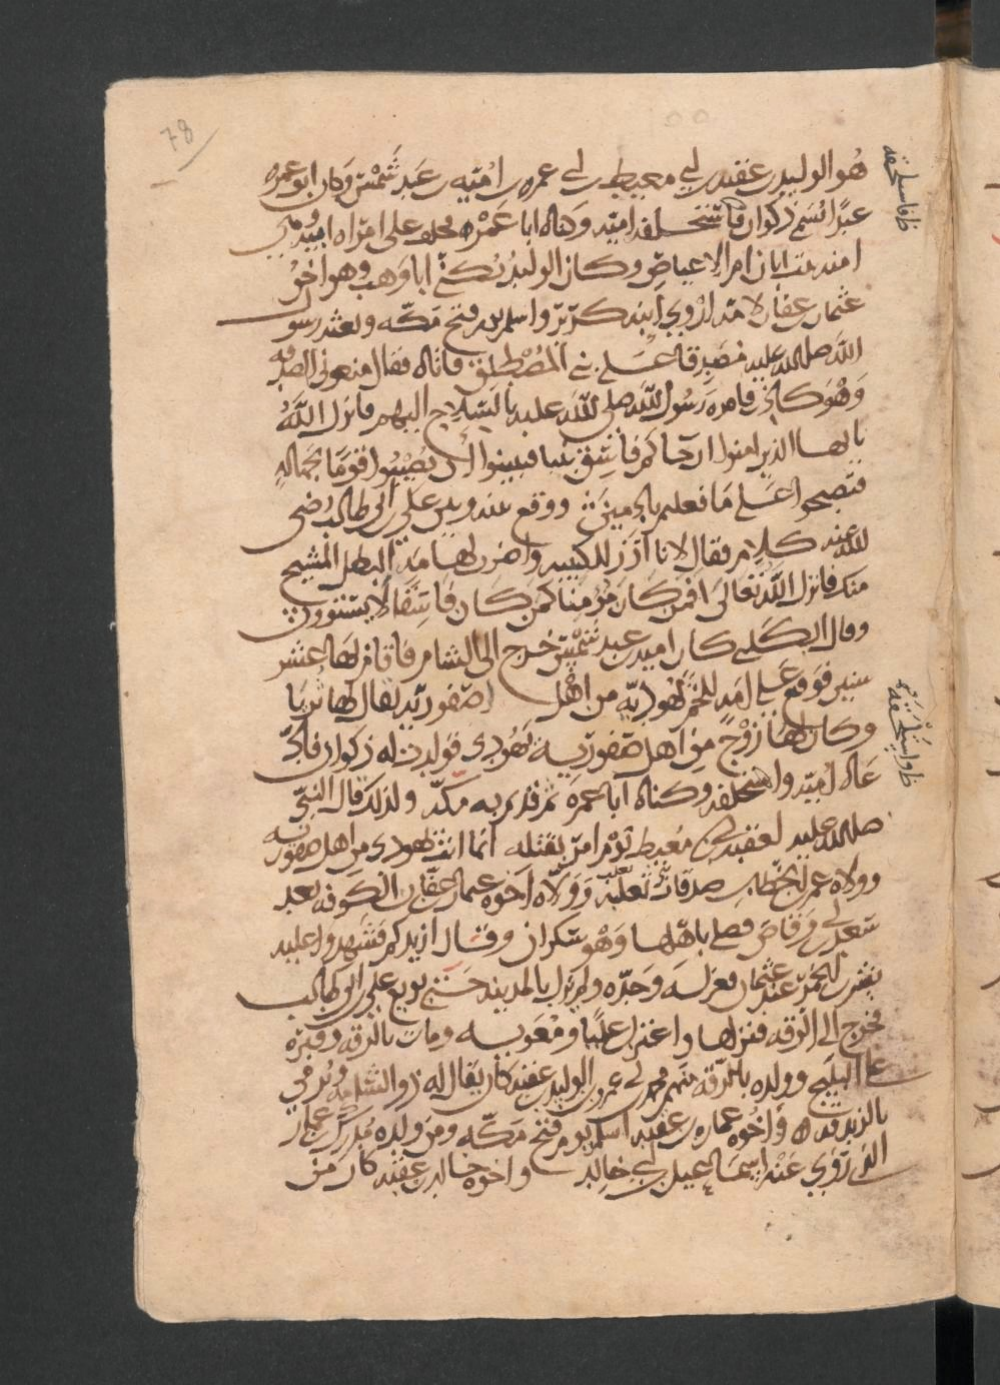 78
هو الوليد بن عقبه بن ابي معيط بن ابي عمرو بن اميه بن عبد شمس وكان ابو عمرو
عبدًا اسمه ذكوان فاستلحقه اميه وكناه ابا عمرو فخلف على امراه ابيه
امنه بنت ابان ام الاعياص وكان الوليد يكنى ابا وهب وهو اخو
عثمان بن عفان لامه اروى ابنه كريز واسلم يوم فتح مكه وبعثه رسول
الله صلى الله عليه مصدقا على بني المصطلق فاتاه فقال منعوني الصدقه
وهو كاذب فامره رسول الله صلى الله عليه بالسلاح اليهم فانزل الله
يا ايها الذين امنوا ان جاكم فاسق بنبا فتبينوا ان تصيبوا قوما بجهاله
فتصبحوا على ما فعلتم نادمين ووقع بينه وبين علي بن ابي طالب رضي
الله عنه كلام فقال لانا ارد للكتيبه واضرب لهامه البطل المشيح
منك فانزل الله تعالى افمن كان مومنا كمن كان فاسقا لا يستوون
وقال الكلبي كان اميه بن عبد شمس خرج الى الشام فاقام بها عشر
سنين فوقع على امه للخم يهوديه من اهل صفوريه يقال لها ترنا
وكان لها زوج من اهل صفوريه يهودي فولدت له ذكوان فاد
عاه اميه واستلحقه وكناه ابا عمرو ثم قدم به مكه ولذلك قال النبي
صلى الله عليه لعقبه بن ابي معيط يوم امر بقتله انما انت يهودي من اهل صفوريه
وولاه عمر بن الخطاب صدقات بني تغلب وولاه اخوه عثمان بن عفان الكوفه بعد
سعد بن ابي وقاص فصلى باهلها وهو سكران وقال ازيدكم فشهدوا عليه
بشرب الخمر عند عثمان فعزله وحده ولم يزل بالمدينه حتى بويع علي بن ابي طالب
فخرج الى الرقه فنزلها واعتزل عليا ومعويه ومات بالرقه وقبره
على البليخ وولده بالرقه منهم محمد بن عمرو بن الوليد بن عقبه كان يقال له ذو الشامه ويرمى
بالزندقه واخوه عماره بن عقبه اسلم يوم فتح مكه ومن ولده مدرك بن عماره
الذي روى عنه اسماعيل بن ابي خالد واخوه خالد بن عقبه كان من
ظ فاستلحقه
ظ واستلحقه